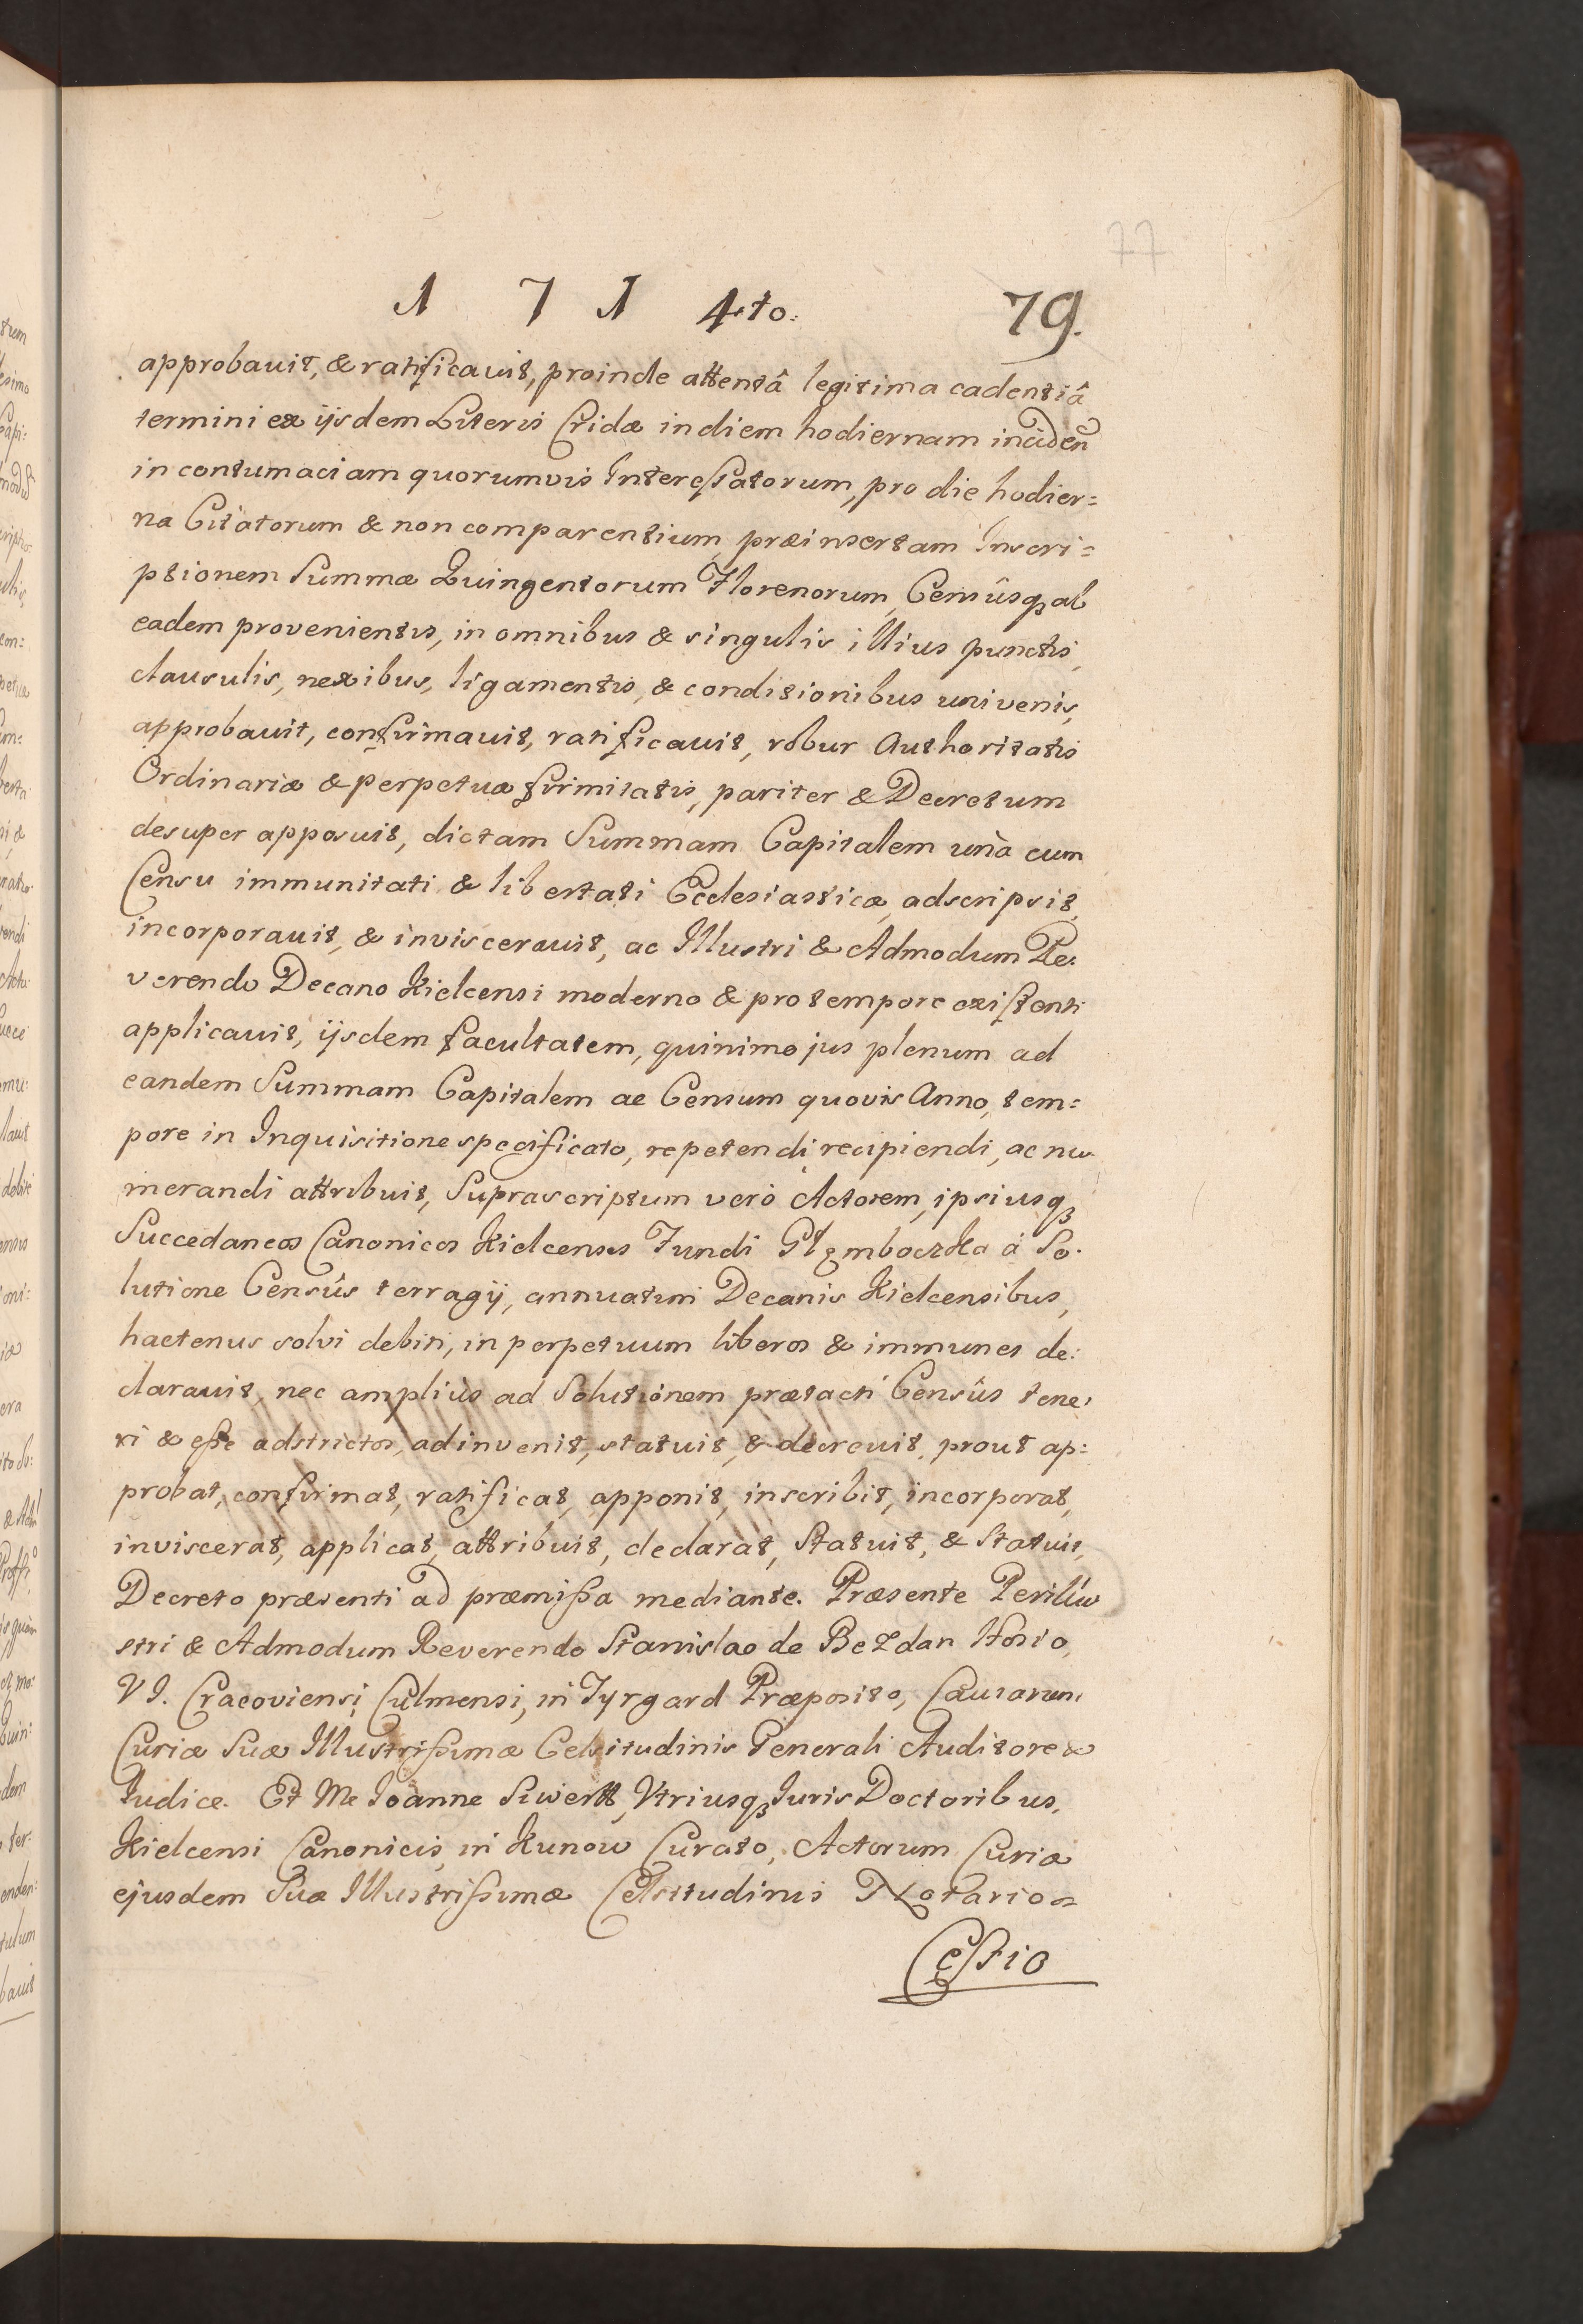 77
1 7 1 4to. 79.
approbauit, & ratificauit, proinde attentâ legitima cadentiâ
termini ex ijsdem Literis Cridæ in diem hodiernam inciden̄
in contumaciam quorumvis Interessatorum, pro die hodier=
na Citatorum & non comparentium, præinsertam Inscri=
ptionem Summæ Quingentorum Florenorum, Censûsqꝫ ab
eadem provenientis, in omnibus & singulis illius punctis,
clausulis, nexibus, ligamentis, & conditionibus univenis,
approbauit, confirmauit, ratificauit, robur Authoritatis
Ordinariæ & perpetuæ firmitatis, pariter & Decretum
desuper apposuit, dictam Summam Capitalem unà cum
Censu immunitati & libertati Ecclesiasticæ, adscripsit,
incorporauit, & inviscerauit, ac Illustri & Admodum Re.
verendo Decano Kielcensi moderno & pro tempore existenti
applicauit, ijsdem facultatem, quinimo jus plenum ad
eandem Summam Capitalem ac Censum quovis Anno, tem=
pore in Inquisitione specificato, repetendi, recipiendi, ac nu.
merandi attribuit, Suprascriptum verò Actorem, ipsiusqꝫ
Succedaneos Canonicos Kielcenses Fundi Głęmboczka à So.
lutione Censûs terragij, annuatim Decanis Kielcensibus,
hactenus solvi debiti, in perpetuum liberos & immunes de:
clarauit, nec ampliùs ad Solutionem prætacti Censûs tene,
ri & esse adstrictos, adinvenit, statuit, & decreuit, prout ap:
probat, confirmat, ratificat, apponit, inscribit, incorporat,
inviscerat, applicat, attribuit, declarat, Statuit, & Statuit,
Decreto præsenti ad præmissa mediante. Præsente Perillu
stri & Admodum Reverendo Stanislao de Bezdan Hosio,
VI. Cracoviensi, Culmensi, in Tyrgard Præposito, Causarum
Curiæ Suæ Illustrissimæ Celsitudinis Generali Auditore &
Iudice. Et Me Ioanne Siwertt, Vtriusqꝫ Iuris Doctoribus,
Kielcensi Canonicis, in Kunow Curato, Actorum Curiæ
ejusdem Suæ Illustrissimæ Celsitudinis Notario
Cessio